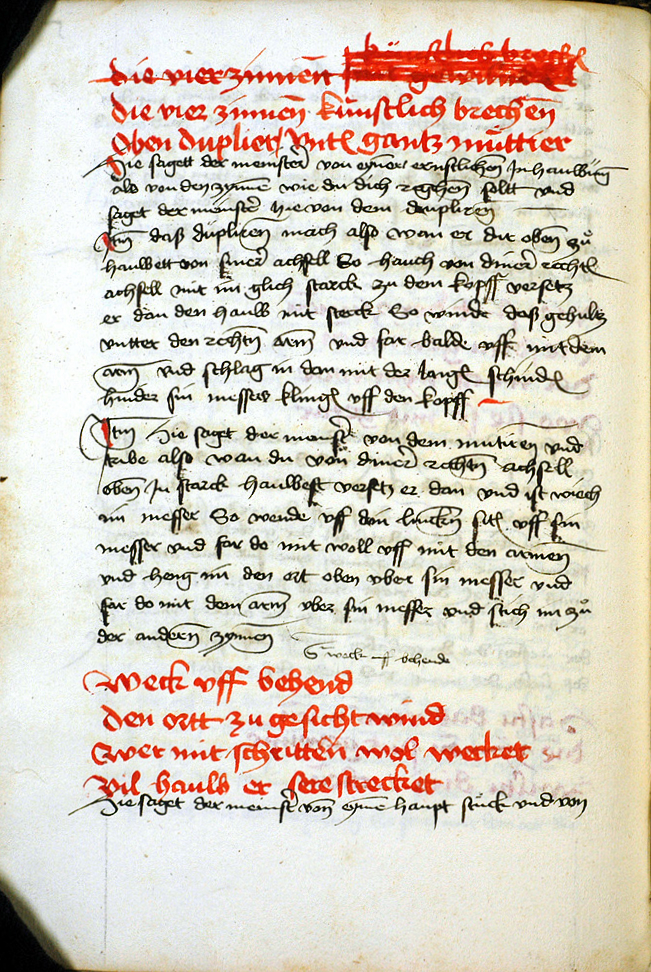 die vier zinnen
die vier zinnen kunstlich brechen
Oben duplier Unten gantz muttier
Hie sagett der meinster von eyner ernstlichen In hauwung
als von den zynne wie du dich rechen soltt und
saget der meinster hie von dem dupliren
Itm daß dupliren mach also wan er dir oben zu
hauwett von siner achsell So hauch von diner rechten
achsell mit im glich starck zu dem kopff versetz
er dan den hauw mit sterck So winde daß gehultz
untter den rechten arm und far balde uff mit dem
arm und schlag in dan mit der langen schinden
hinder sin messers klingen uff den kopff
Itm Hie saget der meinster von dem mutiren und
tribe also wan du von diner rechten achsell
oben In starck hauwest versetz er dan und ist weich
im messer So wende uff din lincken siten uff sin
messer und far do mit woll uff mit den armen
und heng im den ort oben uber sin messer und
far do mit dem arm uber sin messer und stich im zu
der andern zynnen
weck uff behende
Weck uff behend
den ortt zu gesicht wind
Wer mit schritten wol wecket
vil hauw er sere strecket
Hie saget der meinster von eyme haupt stuck und von